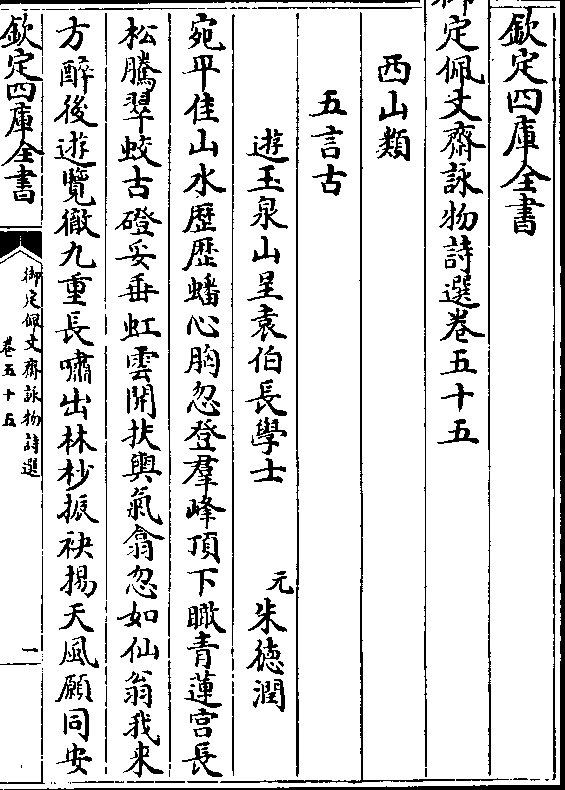 欽定四庫全書
御定佩文齋詠物詩選卷五十五
西山類
五言古
遊玉泉山呈袁伯長學士 元 朱德潤
宛平佳山水歷歷蟠心胸忽登羣峰頂下瞰青蓮宫長
松騰翠蛟古磴妥垂虹雲開扶輿氣翕忽如仙翁我来
方醉後遊覽徹九重長嘯出林杪振袂揚天風願同安
欽定四庫全書
御定佩文齋詠物詩選
卷五十五
一